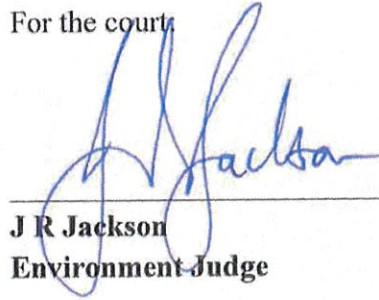 For the court:
J R Jackson
J R Jackson
Environment Judge